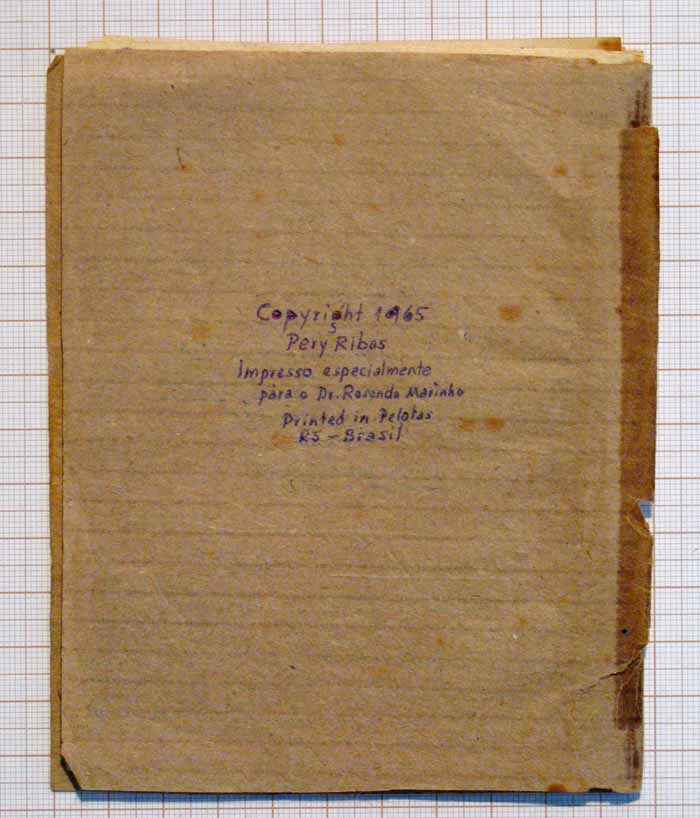 Copyright 1965
Pery Ribas
Impresso especialmente
para o Dr. Rosendo Marinho
Printed in Pelotas
RS - Brasil